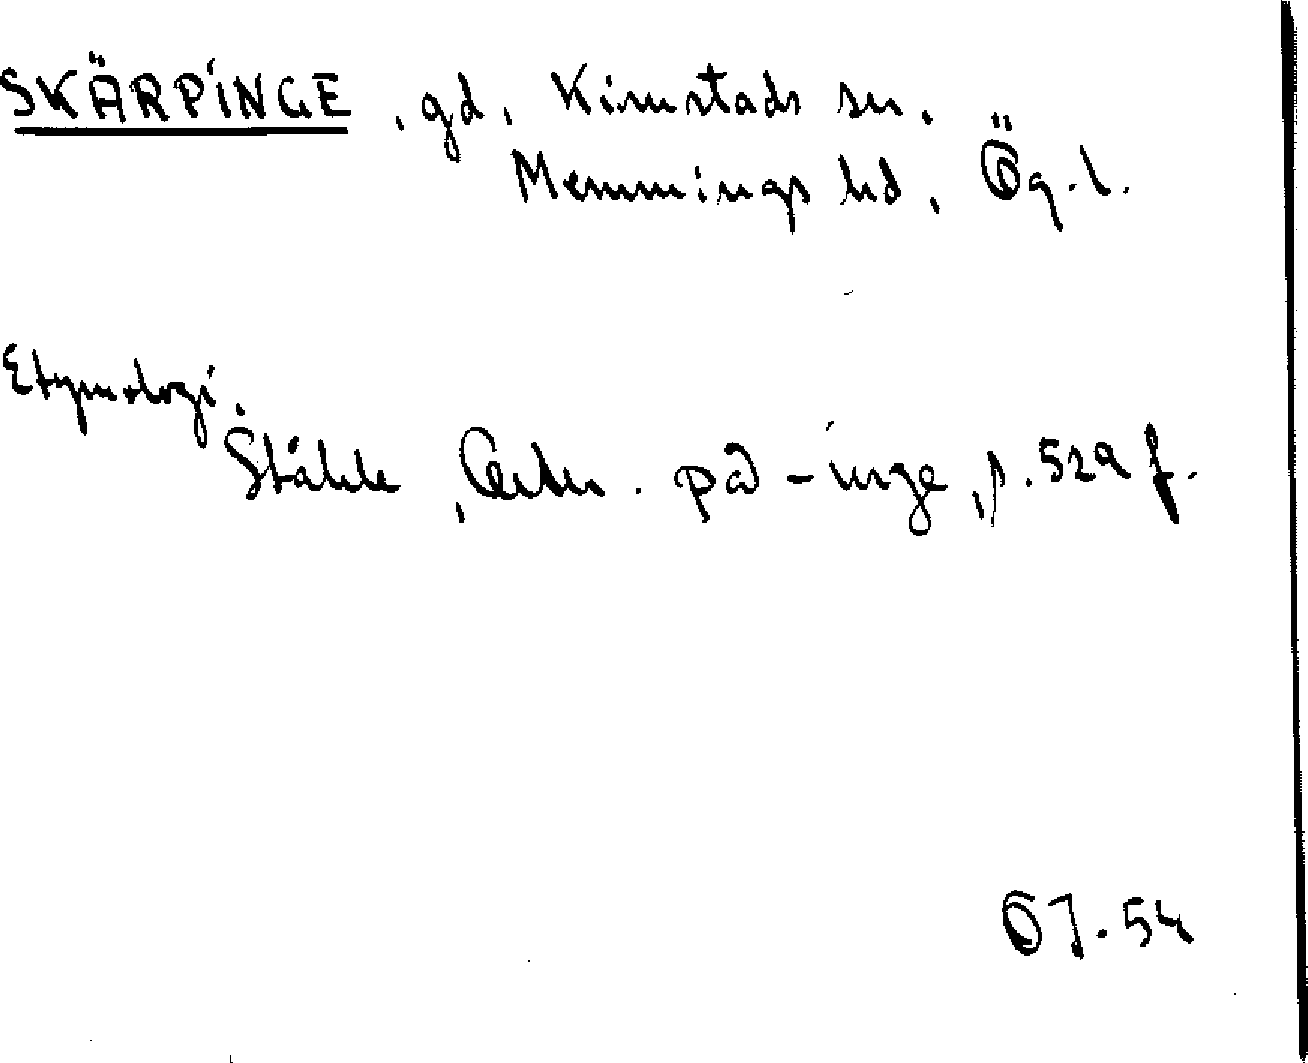 SKÄRPINGE, gd, Kimstads sn,
Memmings hd, Ög.l.
Etymologi.
Ståhle, Ortn. på -inge, p. 529 f.
OJ. 54